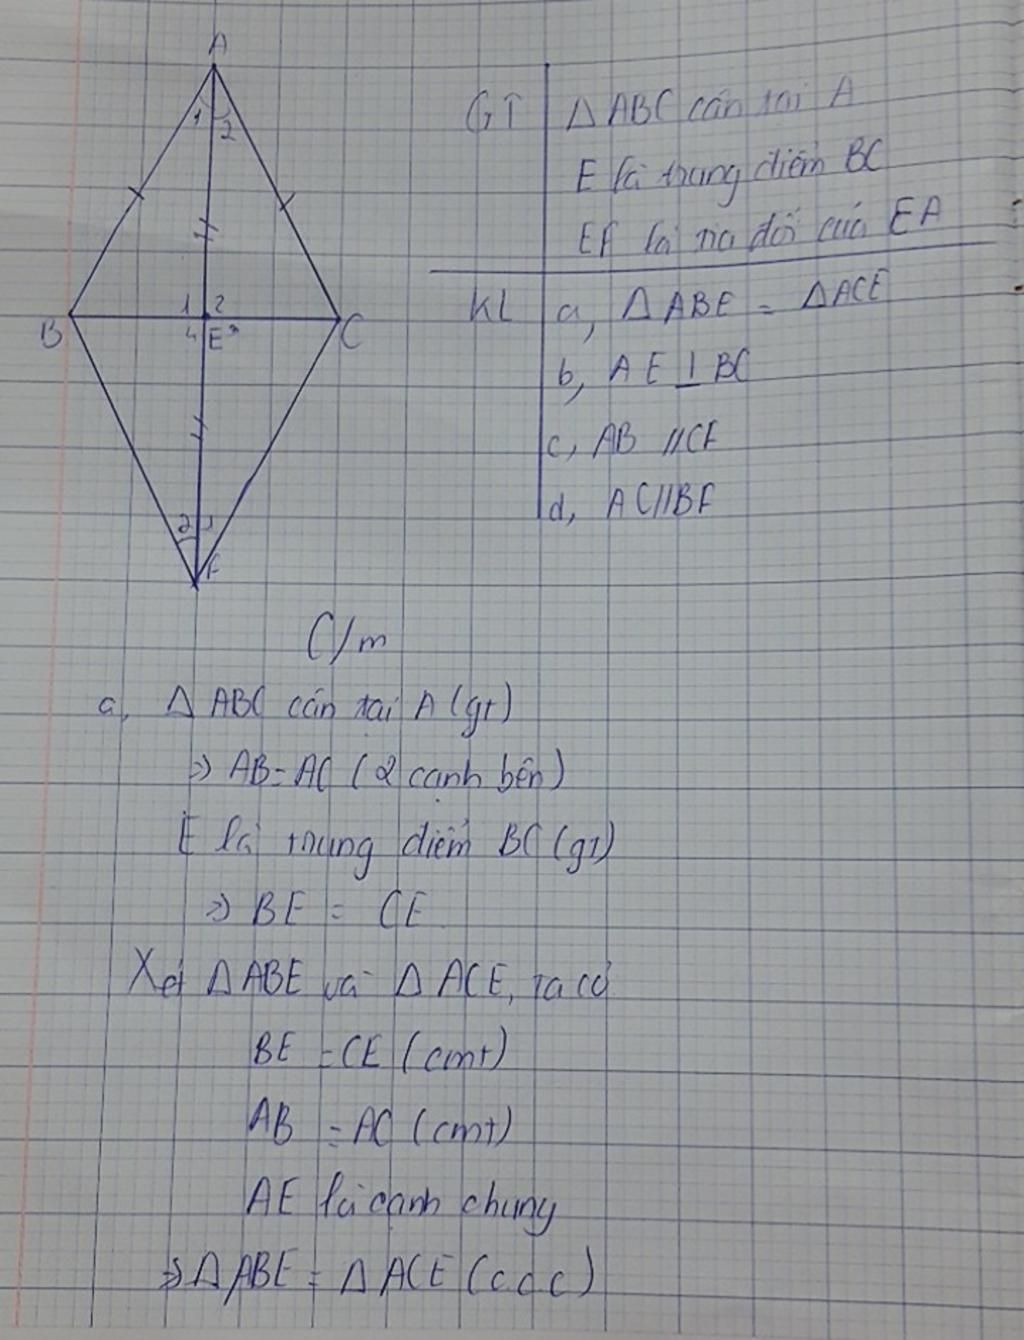 A
1 2
B 1 2 C
4 E 3
2 1
F
GT ΔABC cân tại A
E là trung điểm BC
EF là tia đối của EA
KL a, ΔABE = ΔACE
b, AE ⊥ BC
c, AB // CF
d, AC // BF
C/m
a, Δ ABC cân tại A (gt)
=> AB = AC (2 cạnh bên)
E là trung điểm BC (gt)
=> BE = CE
Xét ΔABE và Δ ACE, ta có
BE = CE (cmt)
AB = AC (cmt)
AE là cạnh chung
=> ΔABE = ΔACE (c.c.c)